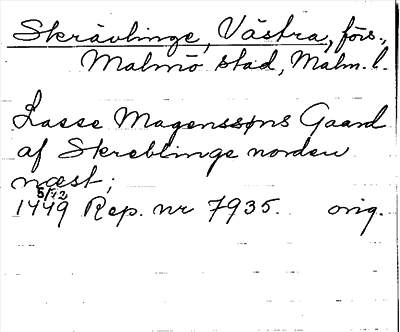 Skrävlinge, Västra, förs.,
Malmö stad, Malm. l.
Lasse Magenssøns Gaard
af Skreblinge norden
næst;
5/12
1449 Rep. nr 7935. orig.